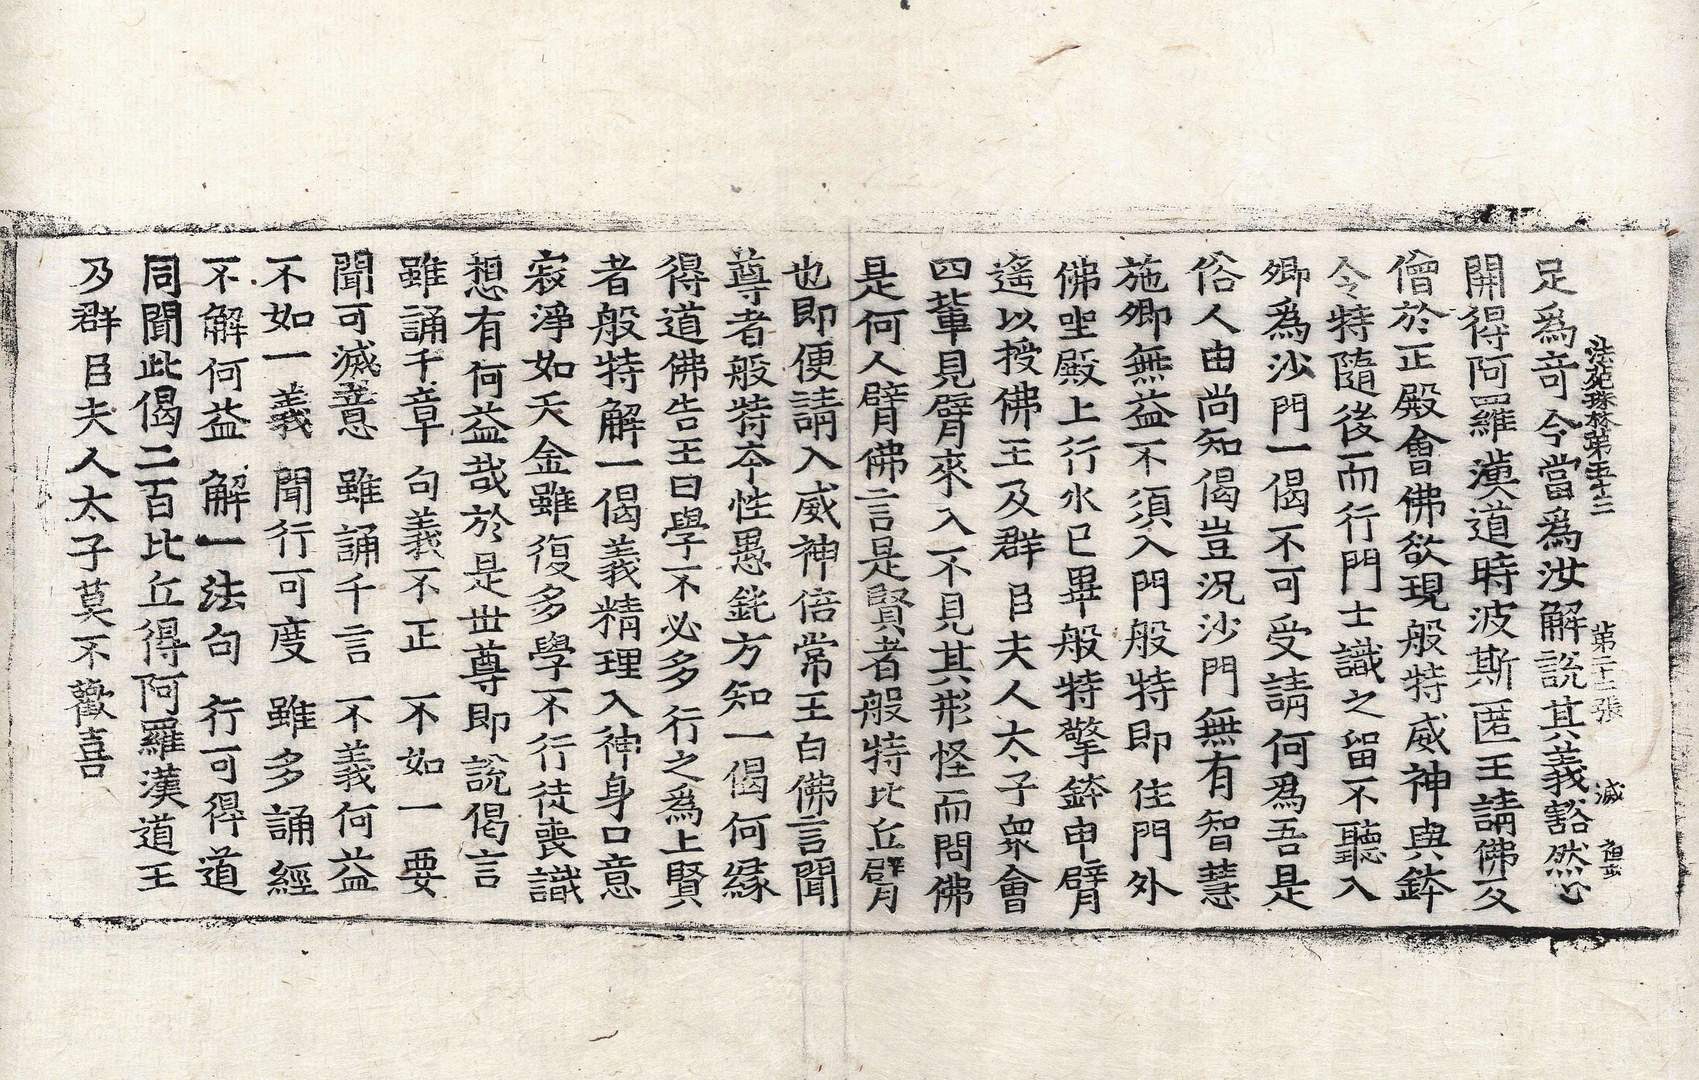 足爲奇今當爲汝解說其義豁然心
法苑珠林第五十三 第二十一張 滅
開得阿羅漢道時波斯匿王請佛及
僧於正殿會佛欲現般特威神與鉢
令特隨後而行門士識之留不聽入
卿爲沙門一偈不可受請何爲吾是
俗人由尚知偈豈況沙門無有智慧
施卿無益不須入門般特即住門外
佛坐殿上行水已畢般特擎鉢申臂
遙以授佛王及群臣夫人太子衆會
四輩見臂來入不見其形怪而問佛
是何人臂佛言是賢者般特比丘臂
也即便請入威神倍常王白佛言聞
尊者般特本性愚鈍方知一偈何緣
得道佛告王曰學不必多行之爲上賢
者般特解一偈義精理入神身口意
寂淨如天金雖復多學不行徒喪識
想有何益哉於是世尊即說偈言
雖誦千章 句義不正 不如一要
聞可滅意 雖誦千言 不義何益
不如一義 聞行可度 雖多誦經
不解何益 解一法句 行可得道
同聞此偈二百比丘得阿羅漢道王
及群臣夫人太子莫不歡喜